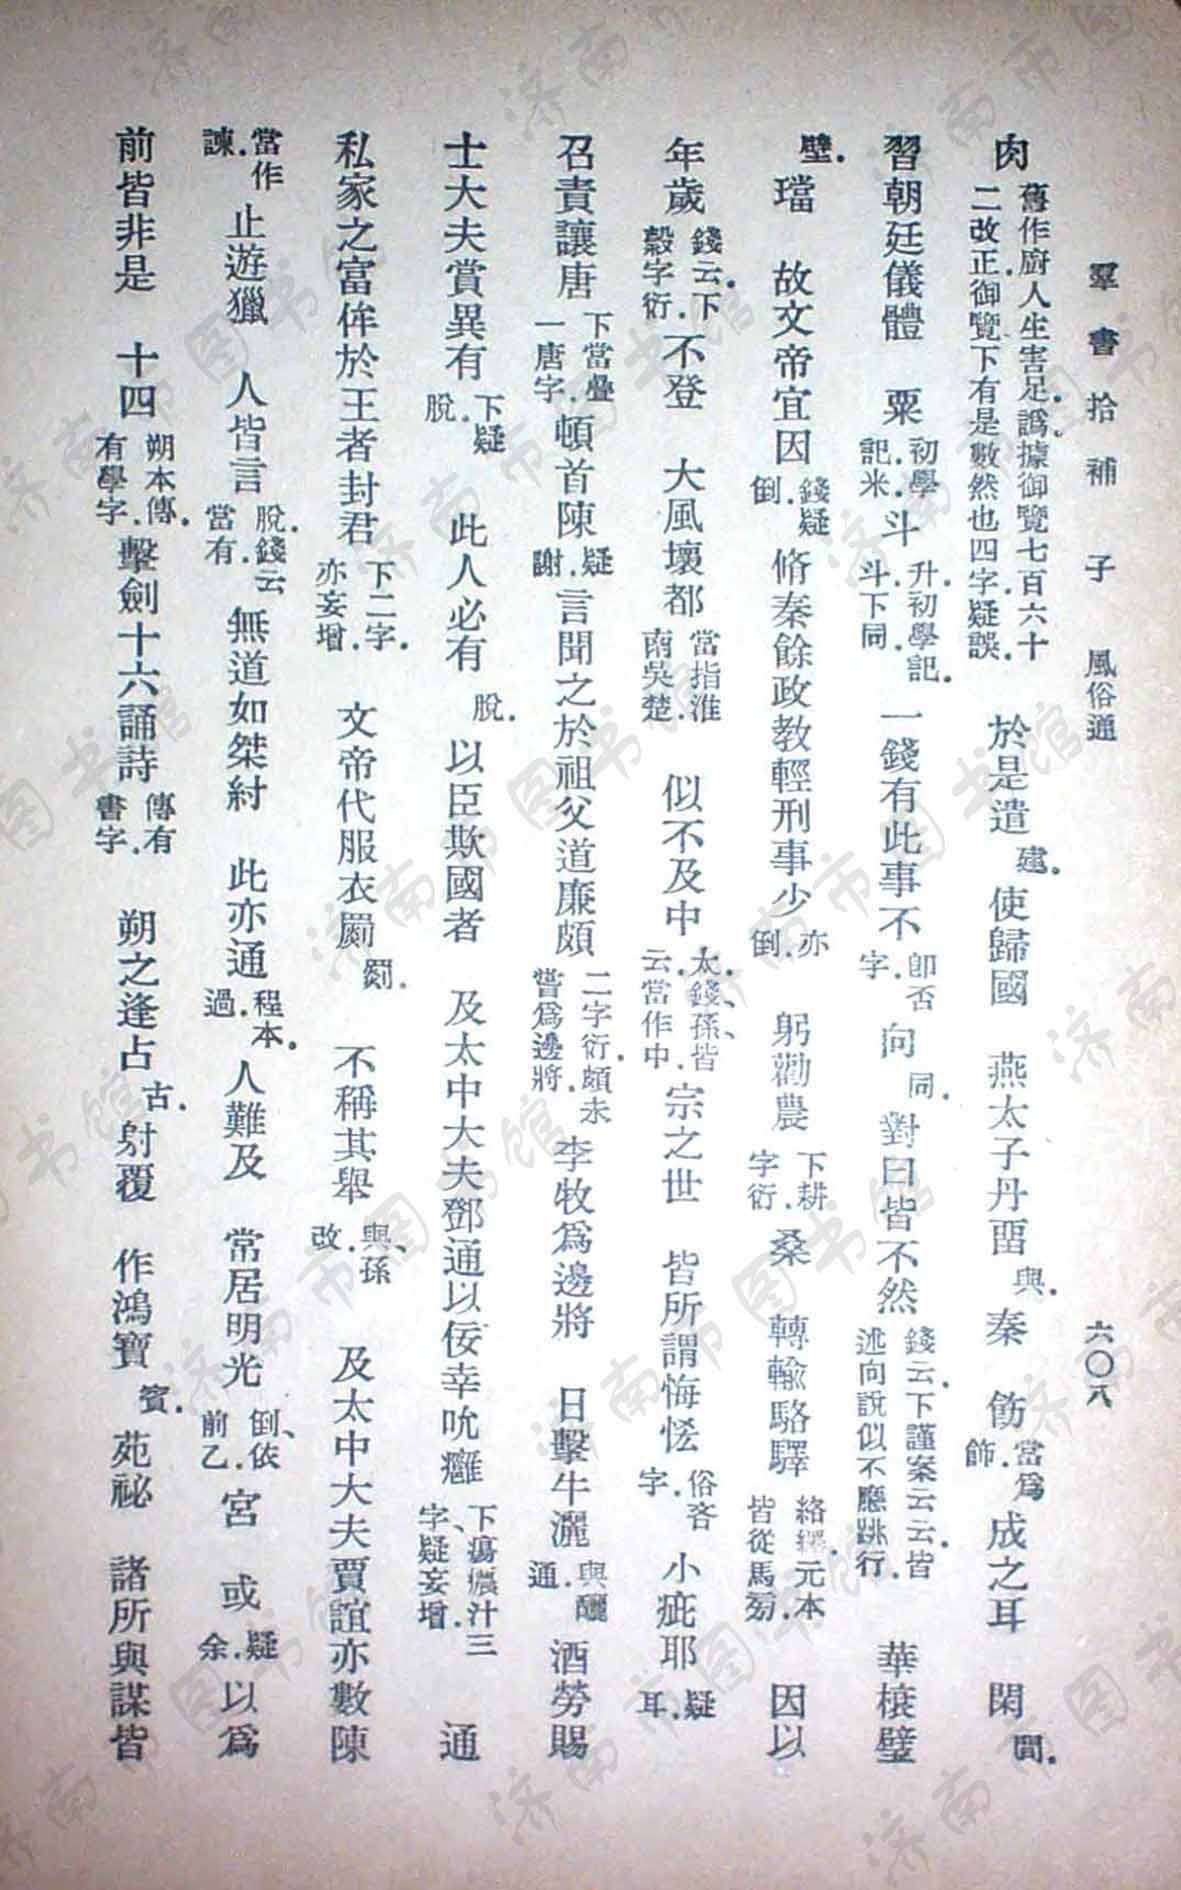 羣書拾補 子 風俗通 六〇八
肉舊作廚人生害足譌據御覽七百六十二改正御覽下有是數然也四字疑誤 於是遣建使歸國 燕太子丹畱與秦 飭當爲飾成之耳 閑閒
習朝廷儀體 粟初學記米斗升初學記斗下同 一錢有此事不卽否字向同 對曰皆不然錢云下謹案云云皆述向說似不應跳行 華榱璧
壁璫 故文帝宜因錢疑倒 脩秦餘政教輕刑事少亦倒 躬勸農下耕字衍桑 轉輸駱驛絡繹元本皆從馬㫄 因以
年歲錢云下穀字衍不登 大風壞都當指淮南吳楚 似不及中太錢孫皆云當作中宗之世 皆所謂悔恡俗吝字小疵耶疑耳
召責讓唐下當疊一唐字頓首陳疑謝言聞之於祖父道廉頗二字衍頗未嘗爲邊將李牧爲邊將 日擊牛灑與釃通酒勞賜
士大夫賞異有下疑脫 此人必有脫 以臣欺國者 及太中大夫鄧通以佞幸吮癰下瘍癰汁三字疑妄增 通
私家之富侔於王者封君下二字亦妄增 文帝代服衣罽罽 不稱其舉與孫改 及太中大夫賈誼亦數陳
當作諫止遊獵 人皆言脫錢云當有無道如桀紂 此亦通程本過人難及 常居明光倒依前乙宮 或疑余以爲
前皆非是 十四朔本傳有學字擊劍十六誦詩傳有書字 朔之逢占古射覆 作鴻寶賓苑祕 諸所與謀皆